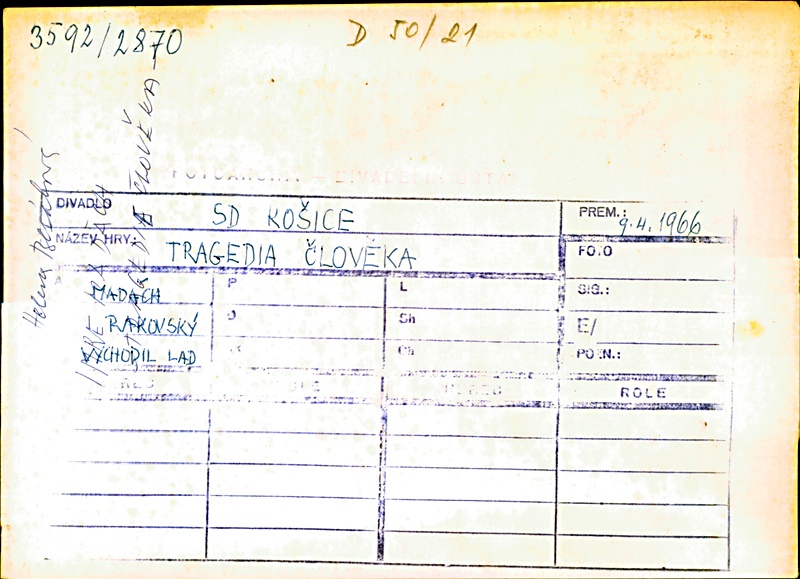 3592/2870
D 50/21
FOTOARCHIV – DIVADELNÍ ÚSTAV
DIVADLO
SD KOŠICE
PREM.:
9.4.1966
NÁZEV HRY:
TRAGEDIA ČLOVĚKA
FOTO
MADACH
P
L
SIG.:
RAKOVSKÝ
Sh
E/
VYCHODIL LAD
Ch
POZN.:
ROLE
Helena
IMRE MADÁCH
TRAGÉDIA ČLOVĚKA